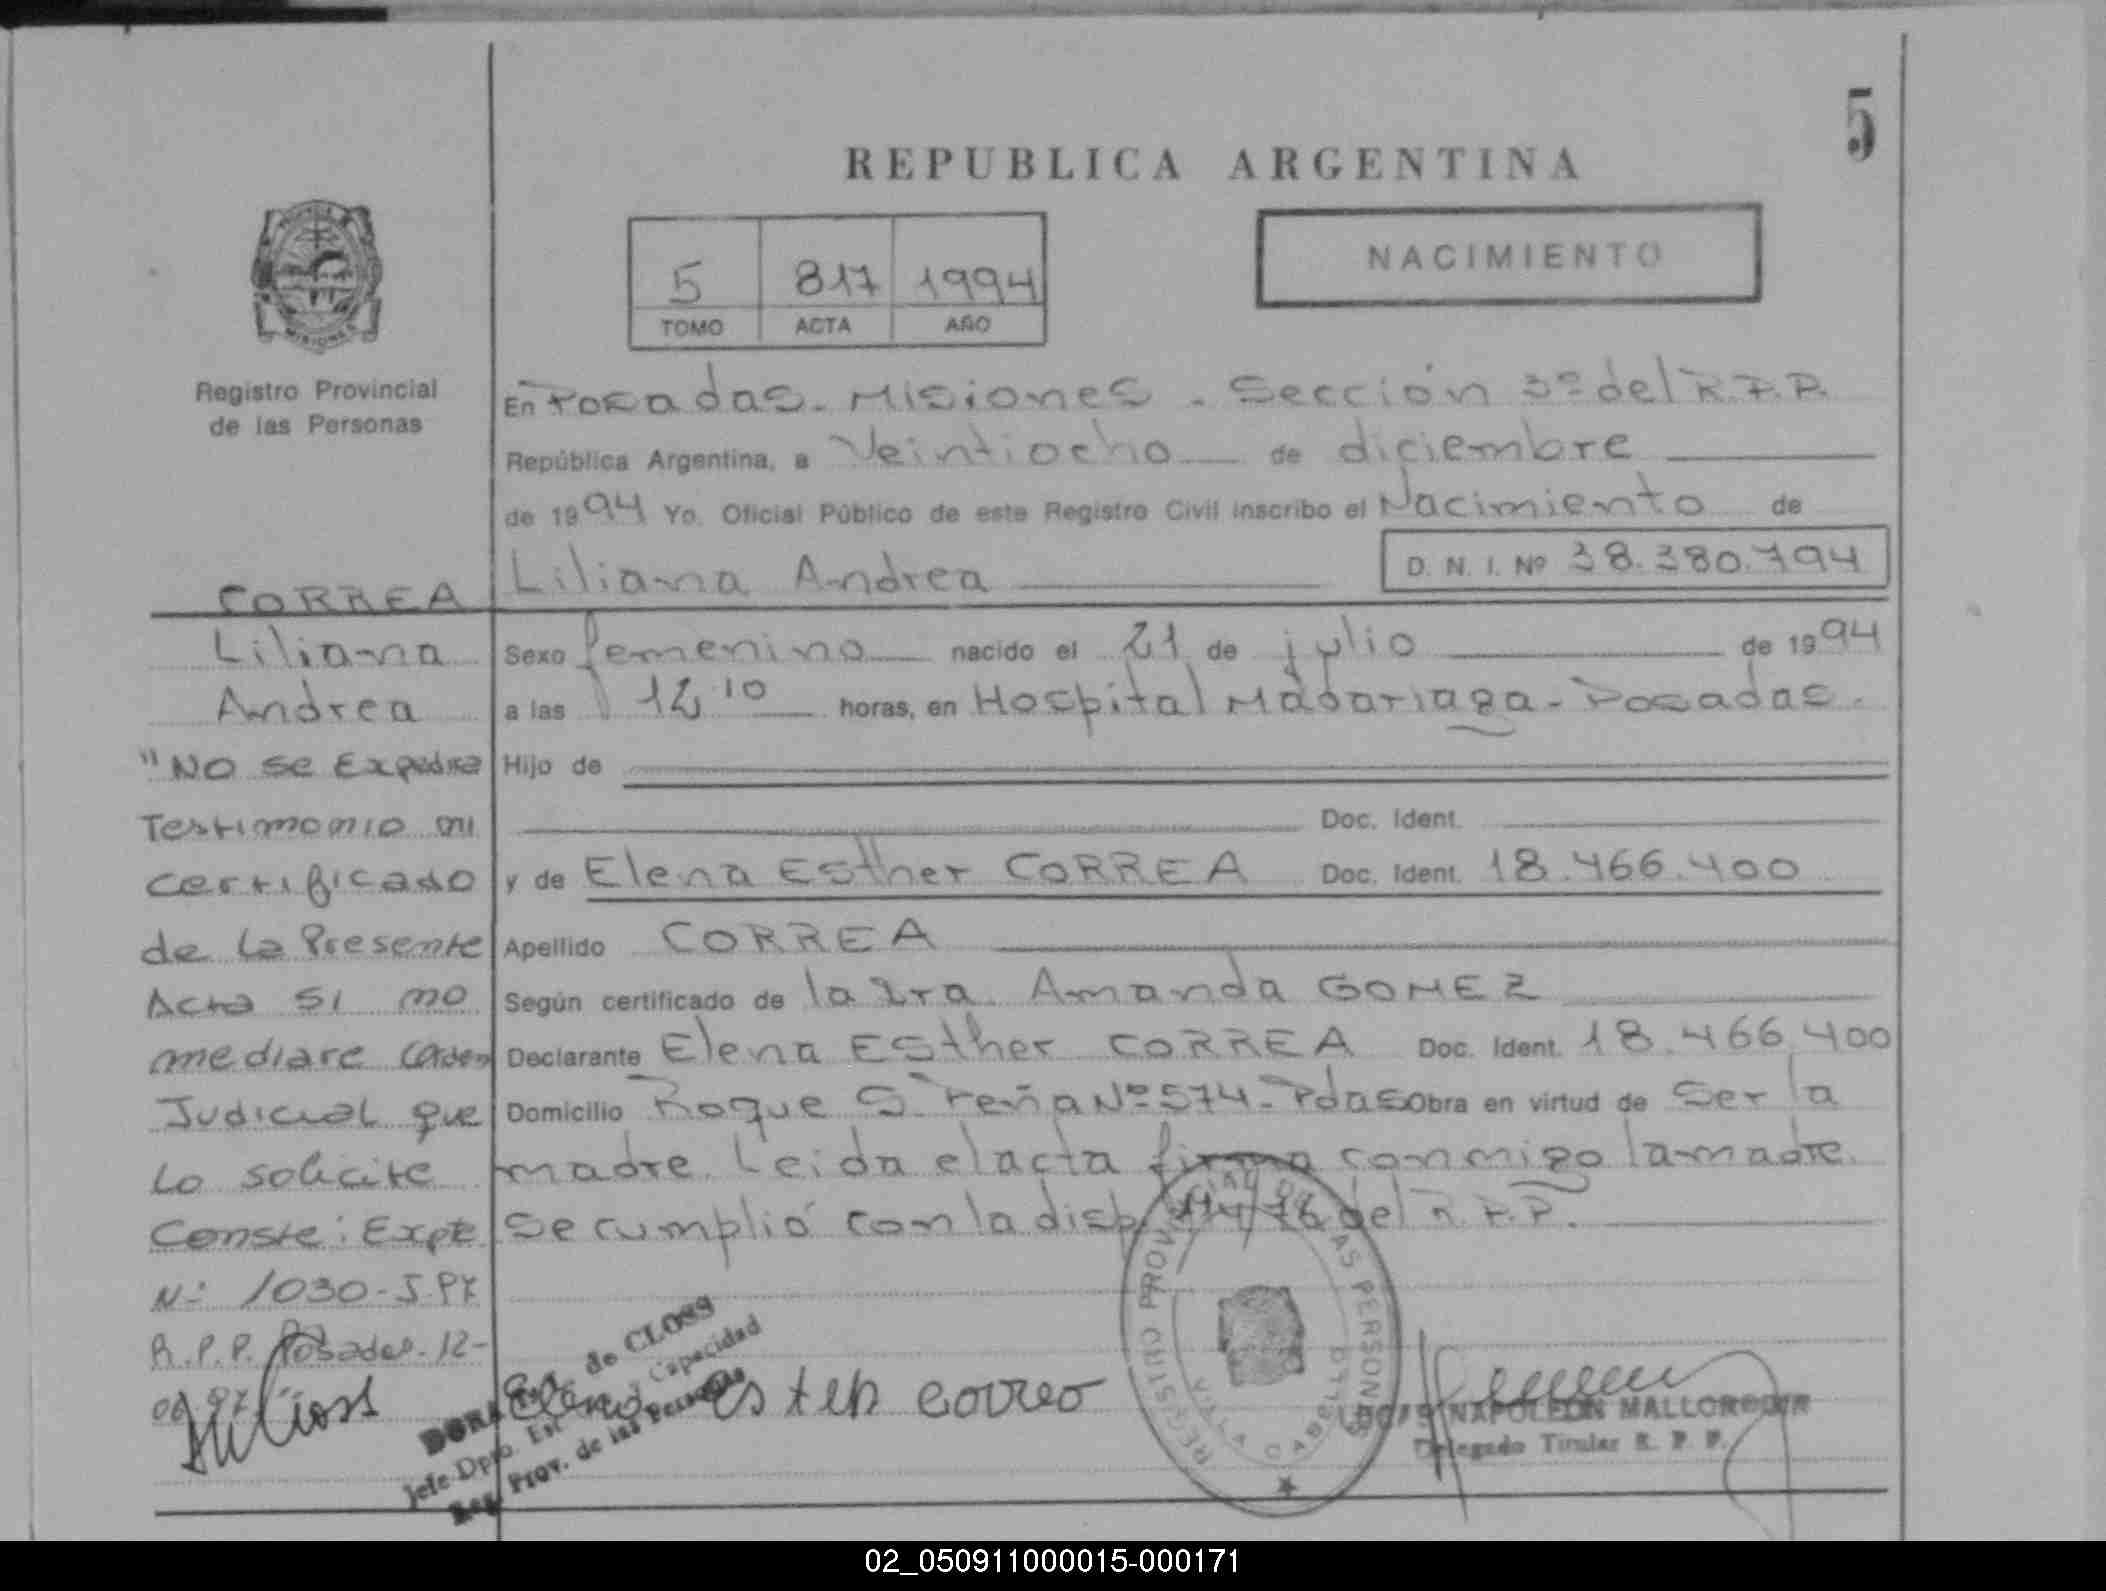 5
REPUBLICA ARGENTINA
NACIMIENTO
5 817 1994
TOMO ACTA AÑO
MISIONES
Registro Provincial
de las Personas
En Posadas. Misiones. Sección 3º del R.P.P.
República Argentina, a Veintiocho de diciembre
de 1994 Yo, Oficial Público de este Registro Civil inscribo el Nacimiento de
Liliana Andrea D. N. I. Nº 38.380.794
Sexo femenino nacido el 21 de julio de 1994
a las 12,10 horas, en Hospital Madariaga - Posadas.
Hijo de
Doc. Ident.
y de Elena Esther CORREA Doc. Ident. 18.466.400
Apellido CORREA
Según certificado de la Dra. Amanda GOMEZ
Declarante Elena Esther CORREA Doc. Ident. 18.466.400
Domicilio Roque S. Peña Nº 574 - Pdas Obra en virtud de Ser la
madre. Leida el acta firma conmigo la madre.
Se cumplió con la disp. del R.P.P.
CORREA
Liliana
Andrea
"No se Expedira
Testimonio ni
certificado
de la Presente
Acta si no
mediare Orden
Judicial que
Lo solicite
Conste: Expte
Nº 1030-J-97
R.P.P. Posadas. 12-
06-97
DORA de CLOSS
Jefe Dpto. Est. Capacidad
Reg. Prov. de las Personas
Elena Ester correo
REGISTRO PROVINCIAL DE LAS PERSONAS
VILLA CABELLO
NAPOLEON MALLORQUIN
Delegado Titular R. P. P.
02_050911000015-000171